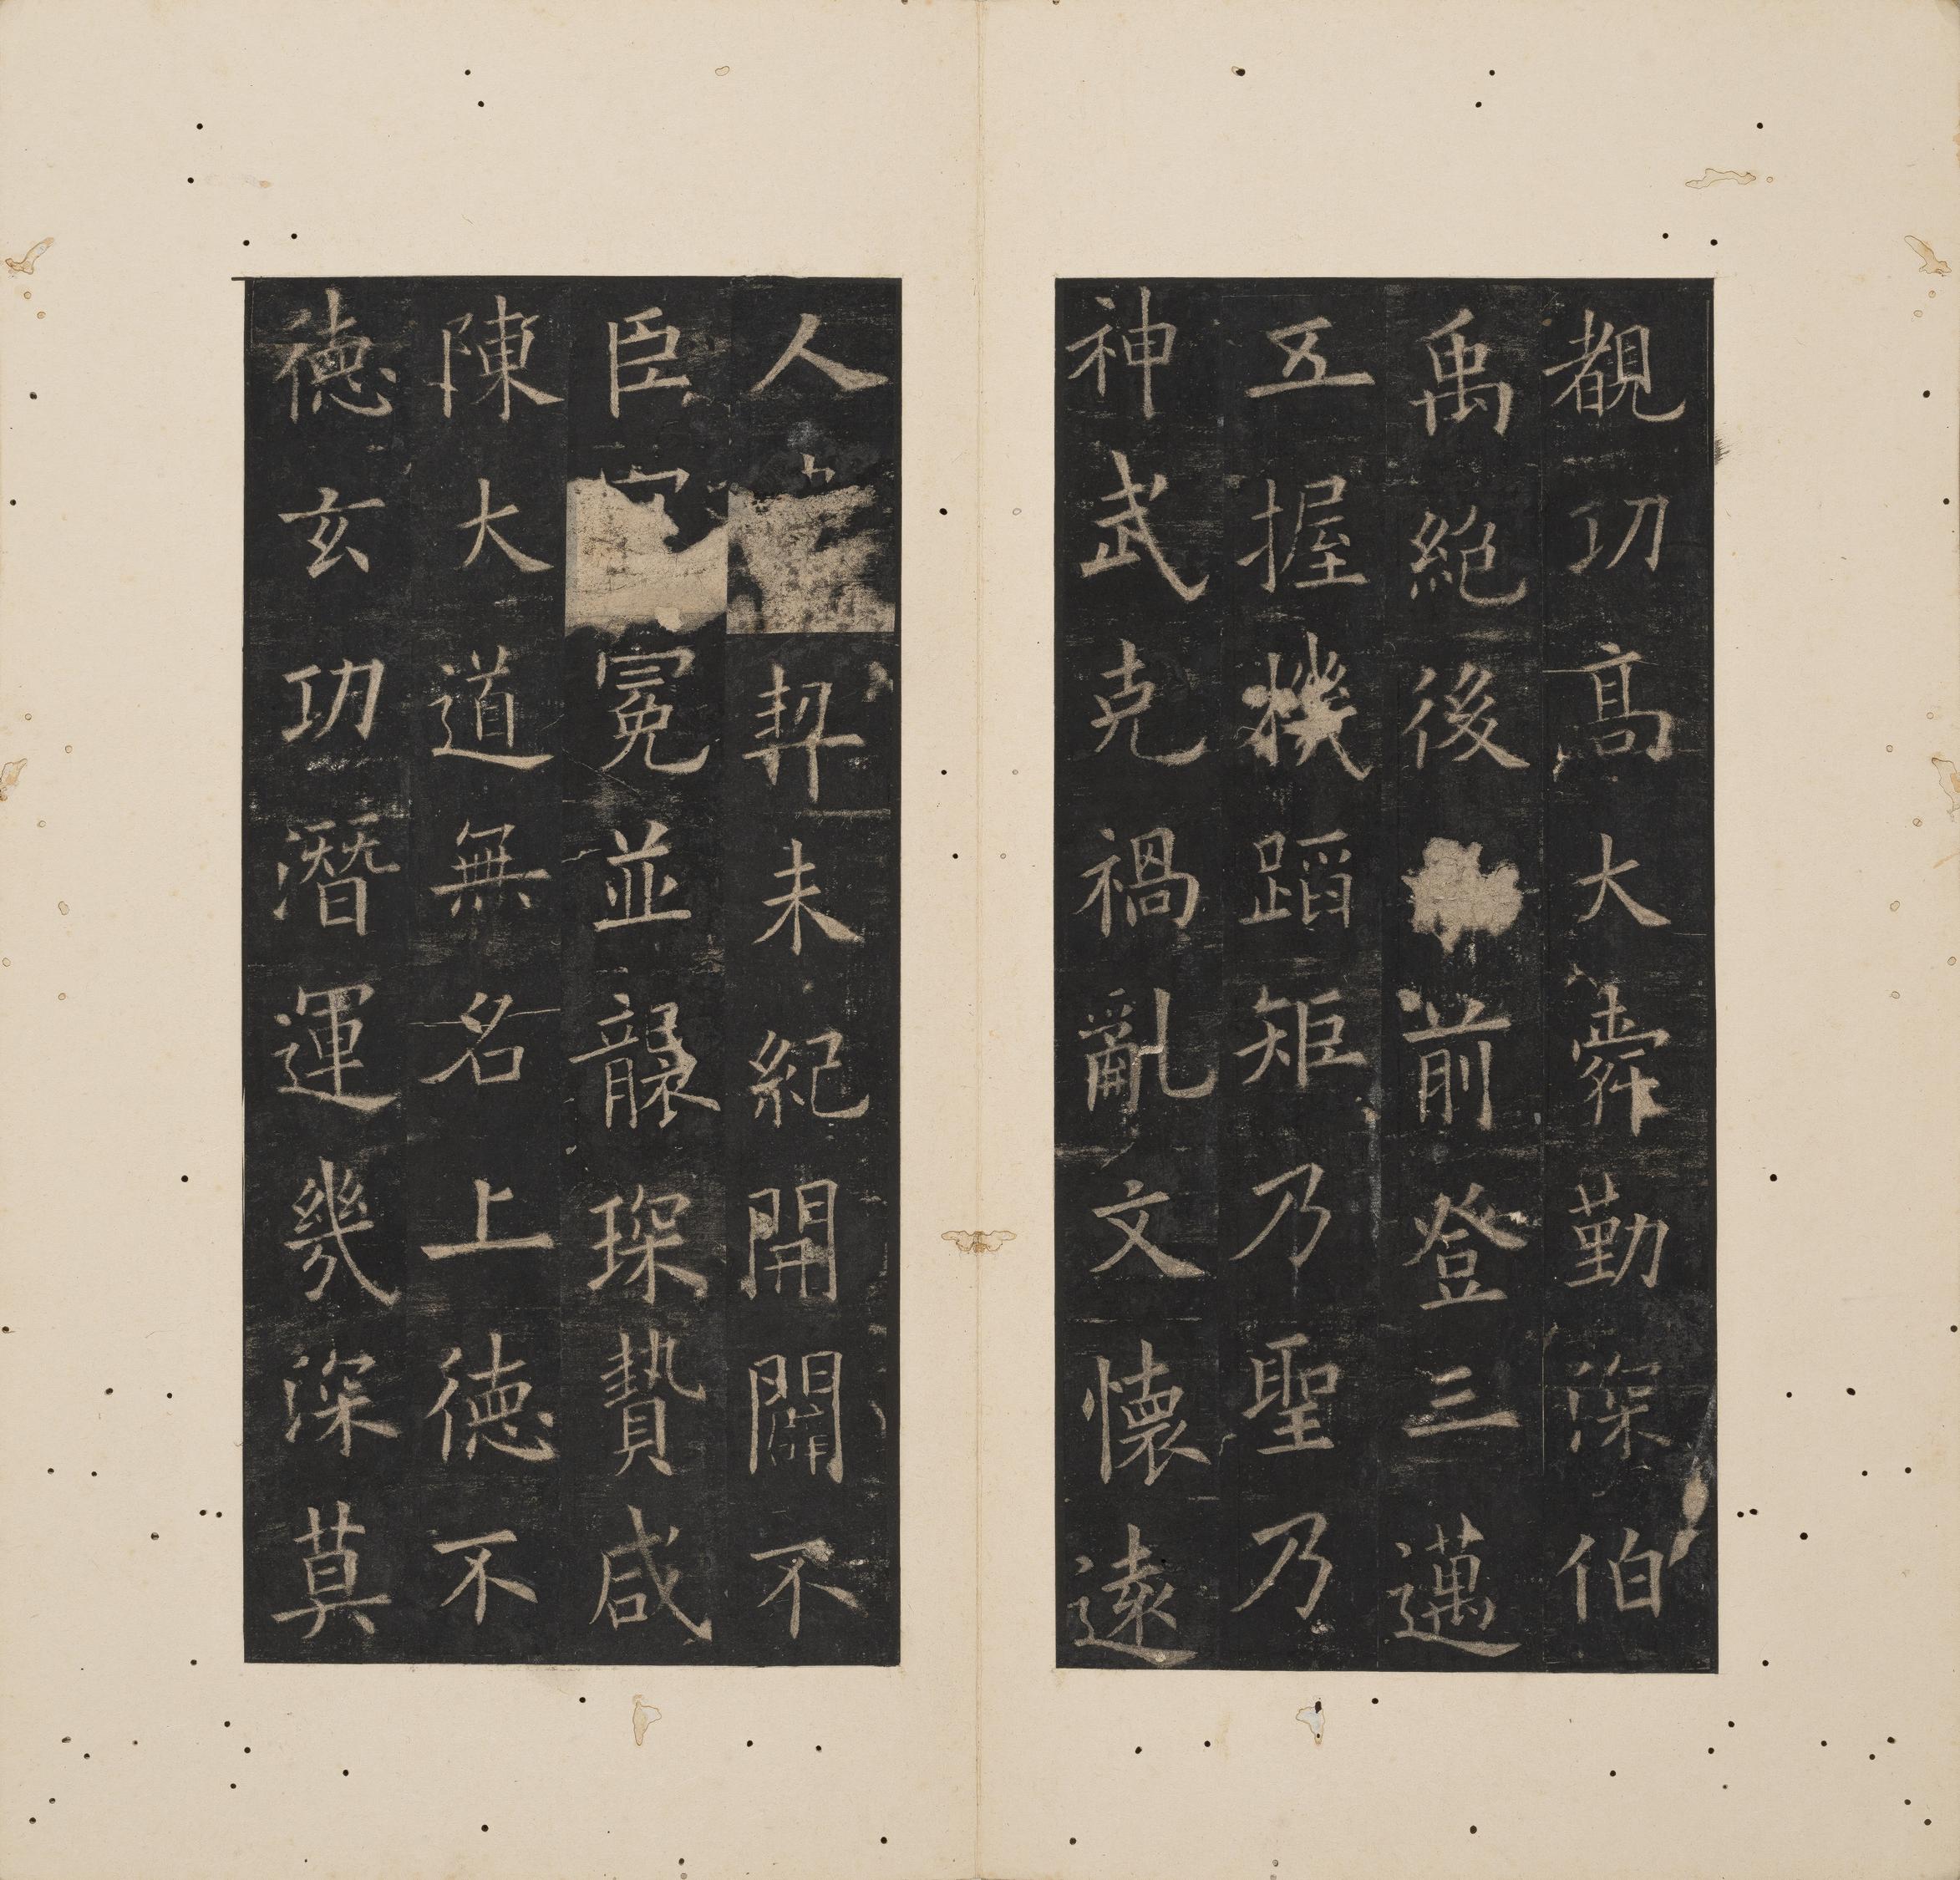 覩功髙大舜勤深伯
禹絕後前登三邁
五握機蹈矩乃聖乃
神武克禍亂文懷遠
人契未紀開闢不
臣冕並襲琛贄咸
陳大道無名上德不
德玄功潛運幾深莫